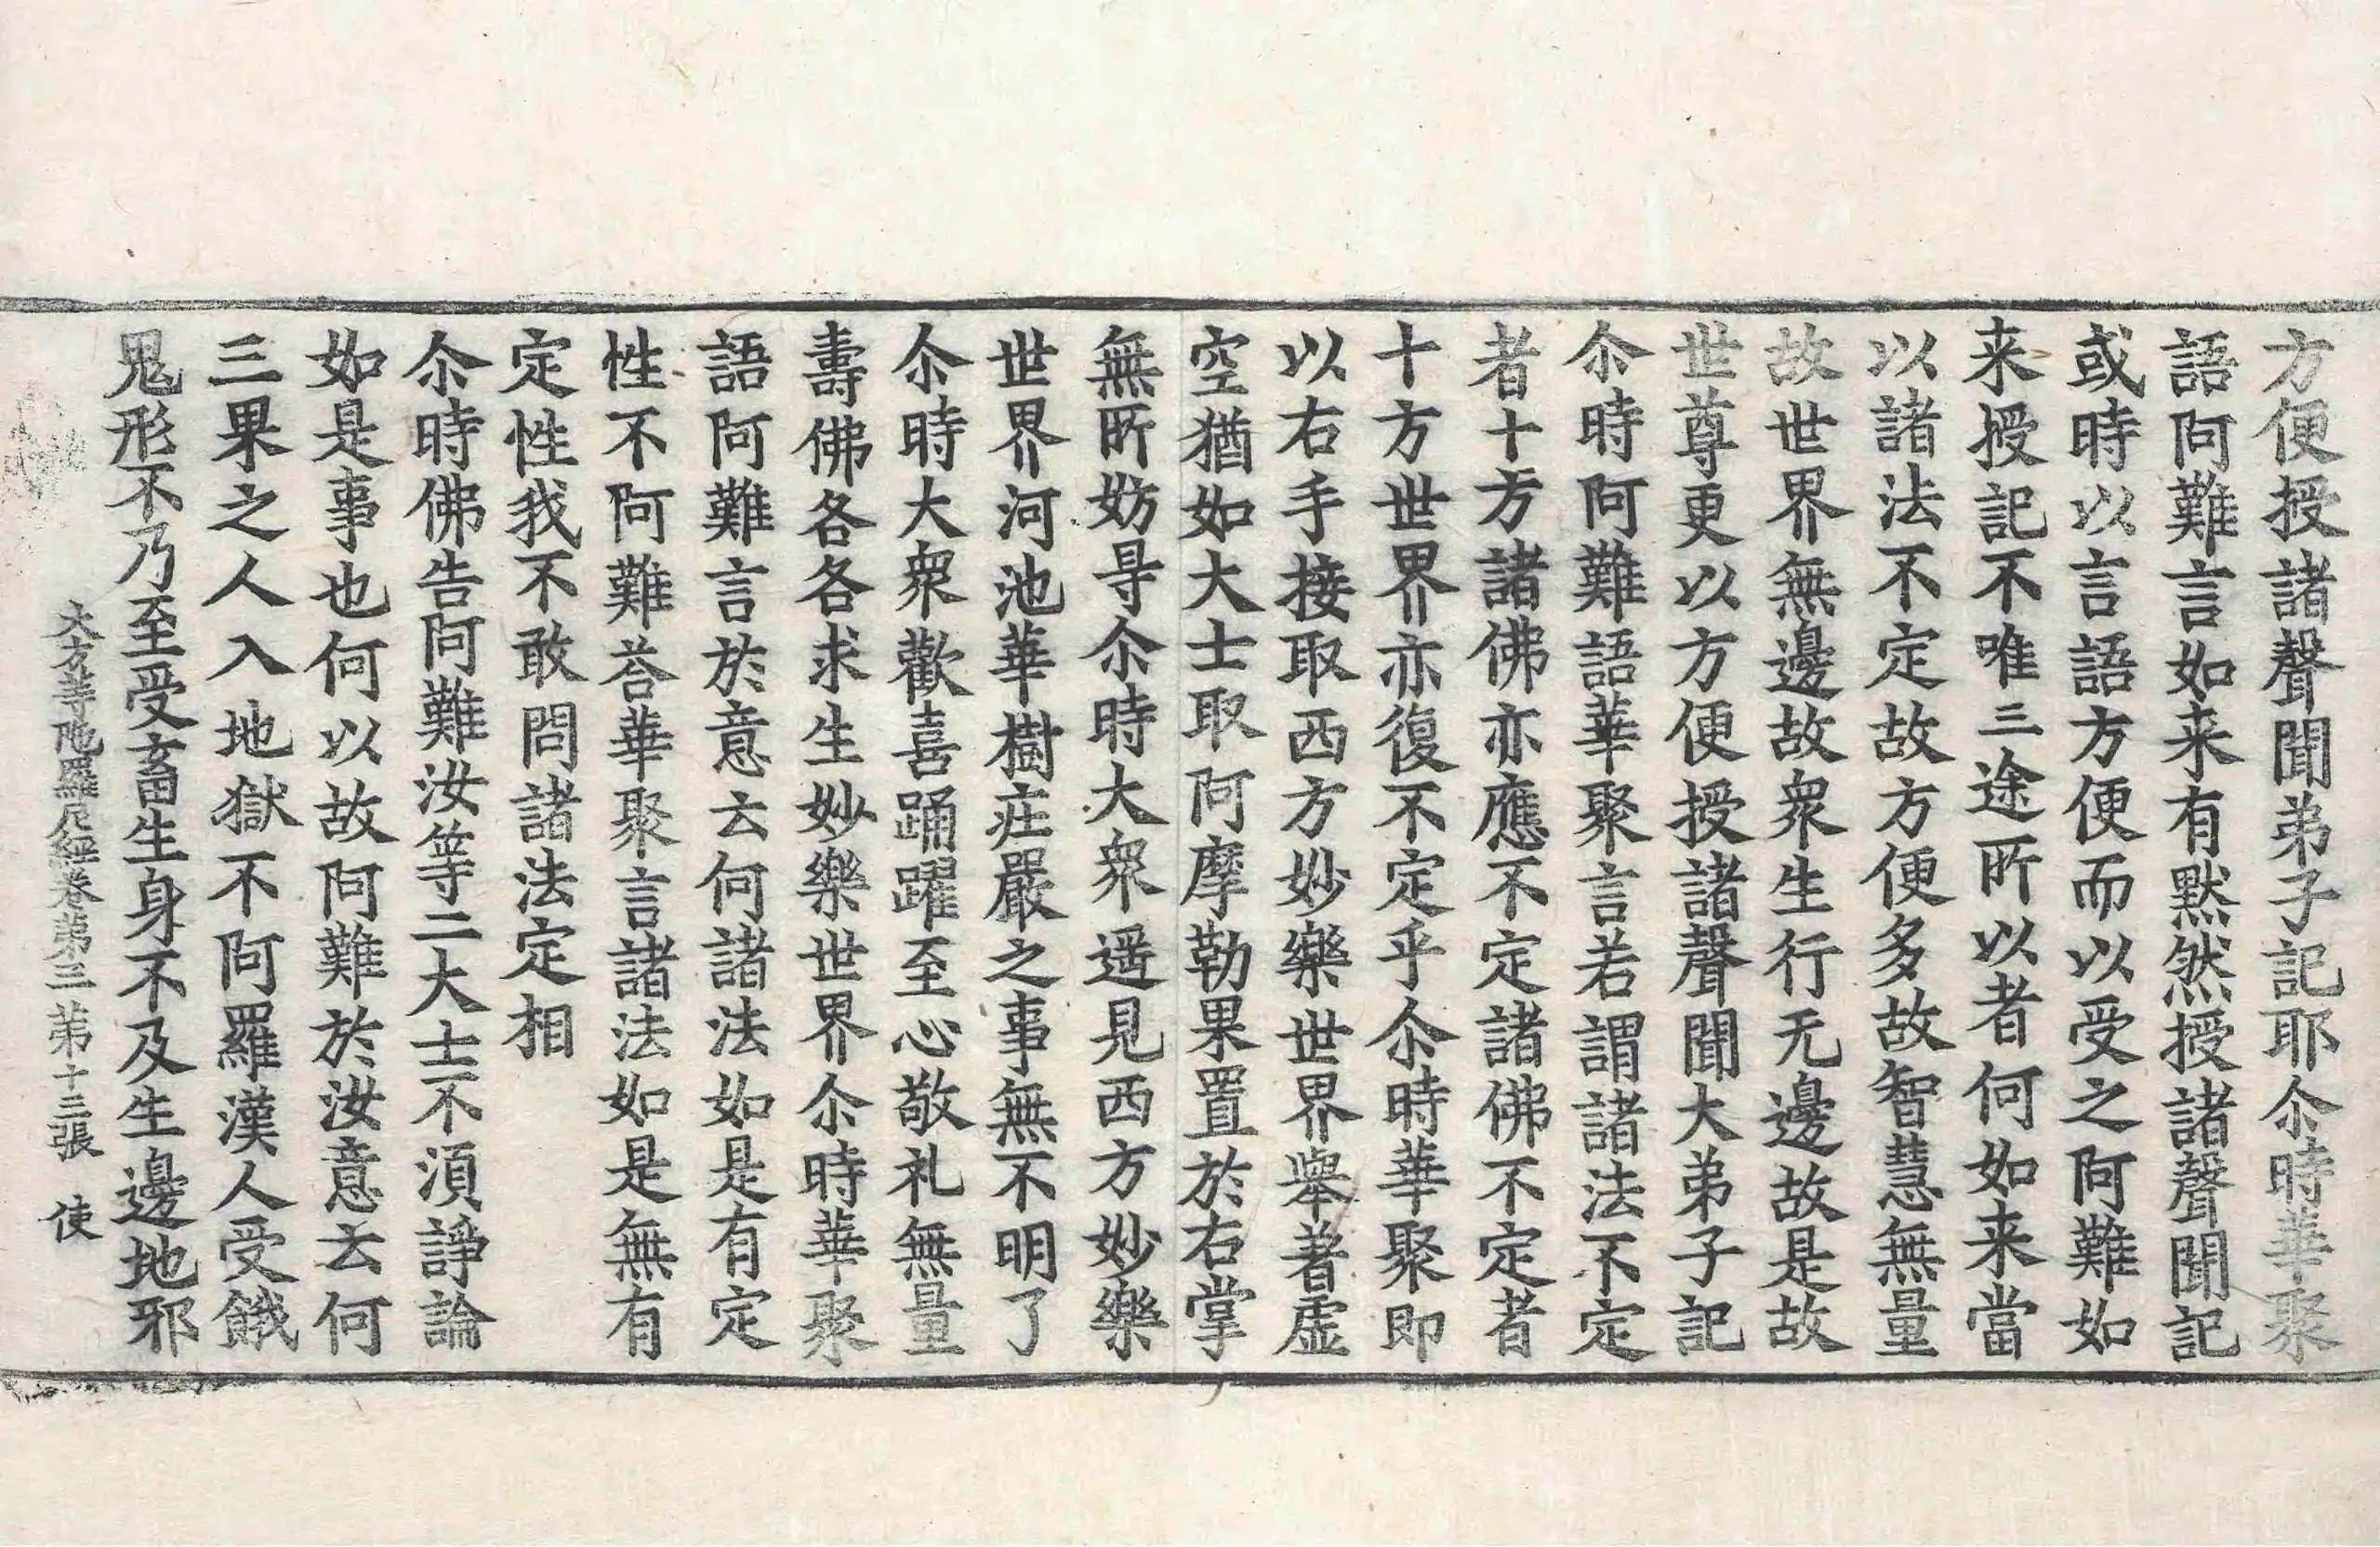 方便授諸聲聞弟子記耶尒時華聚
語阿難言如来有黙然授諸聲聞記
或時以言語方便而以受之阿難如
来授記不唯三途所以者何如来當
以諸法不定故方便多故智慧無量
故世界無邊故衆生行无邊故是故
世尊更以方便授諸聲聞大弟子記
尒時阿難語華聚言若謂諸法不定
者十方諸佛亦應不定諸佛不定者
十方世界亦復不定乎尒時華聚即
以右手接取西方妙樂世界舉著虛
空猶如大士取阿摩勒果置於右掌
無所妨㝵尒時大衆遥見西方妙樂
世界河池華樹庄嚴之事無不明了
尒時大衆歡喜踊躍至心敬礼無量
壽佛各各求生妙樂世界尒時華聚
語阿難言於意云何諸法如是有定
性不阿難荅華聚言諸法如是無有
定性我不敢問諸法定相
尒時佛告阿難汝等二大士不湏諍論
如是事也何以故阿難於汝意云何
三果之人入地獄不阿羅漢人受餓
鬼形不乃至受畜生身不及生邊地邪
大方等陁羅尼經卷第三 第十三張 使